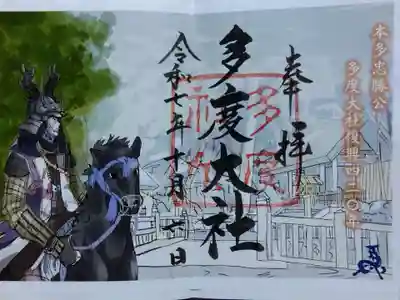 本多忠勝公
多度大社復興四二〇年
奉拝
多度大社
令和七年十月 日